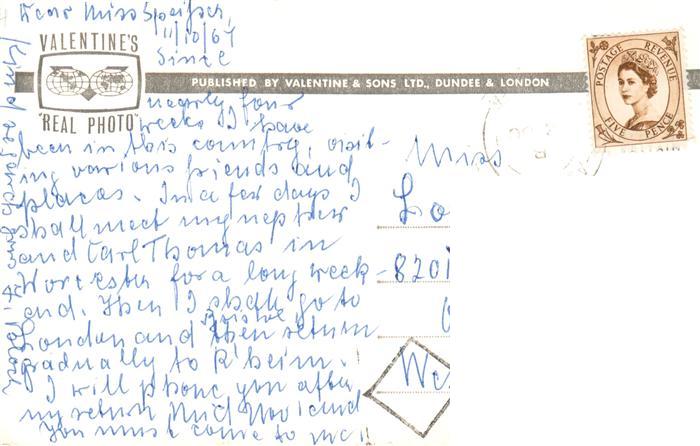 Dear Miss Speisser,
11/10/67
Since
nearly four
weeks I have
been in this country, visit-
ing various friends and
places. In a few days I
shall meet my nephew
and Carl Thomas in
Worcester for a long week-
end. Then I shall go to
London and then return
gradually to R'heim.
I will phone you after
my return Mid Nov. and
you must come to me!
Kind regards
VALENTINE'S
"REAL PHOTO"
PUBLISHED BY VALENTINE & SONS LTD., DUNDEE & LONDON
POSTAGE REVENUE
FIVE PENCE
Miss
Lo
8201
We